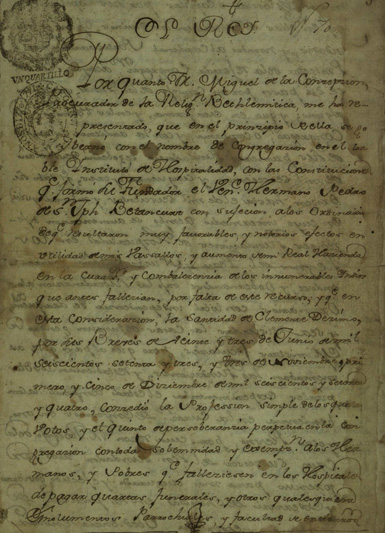 El Rey
UN QUARTILLO
Por quanto Fr. Miguel de la Concepcion,
Procurador de la Relig.n Bethlemitica, me ha re-
presentado, que en el principio della, se go-
berno con el nombre de Congregacion en el
ble Instituto de Hospitalidad, con las Constitucion
q.e formo su Fundador el Ven.e Hermano Pedro
de S.n Jph Betancurt con sujecion a los Ordinarios
de q.e resultaron muy favorables, y notorios efectos en
utilidad de mis Vassallos, y aumento de mi Real Hacienda,
en la Curas.n y combalecencia de los innumerables Indios
que antes fallecian, por falta de este recurso, y q.e en
esta consideracion, la Santidad de Clemente Dezimo,
por dos Breves de veinte y tres de Junio de mil
seiscientos setenta y tres, y tres de Noviembre, pri
mero, y cinco de Diziembre de mil seiscientos y setenta
y quatro, concedio la Profession simple de los quatro
Votos, y el quinto de perseberancia perpetua en la con
gregacion con toda solemnidad y exempz.n a los Her
manos, y Pobres q.e falleciesen en los Hospitales
de pagar quartas funerales, y otros qualesquiera
Emolumentos Parrochiales, y facultad de enterrarse